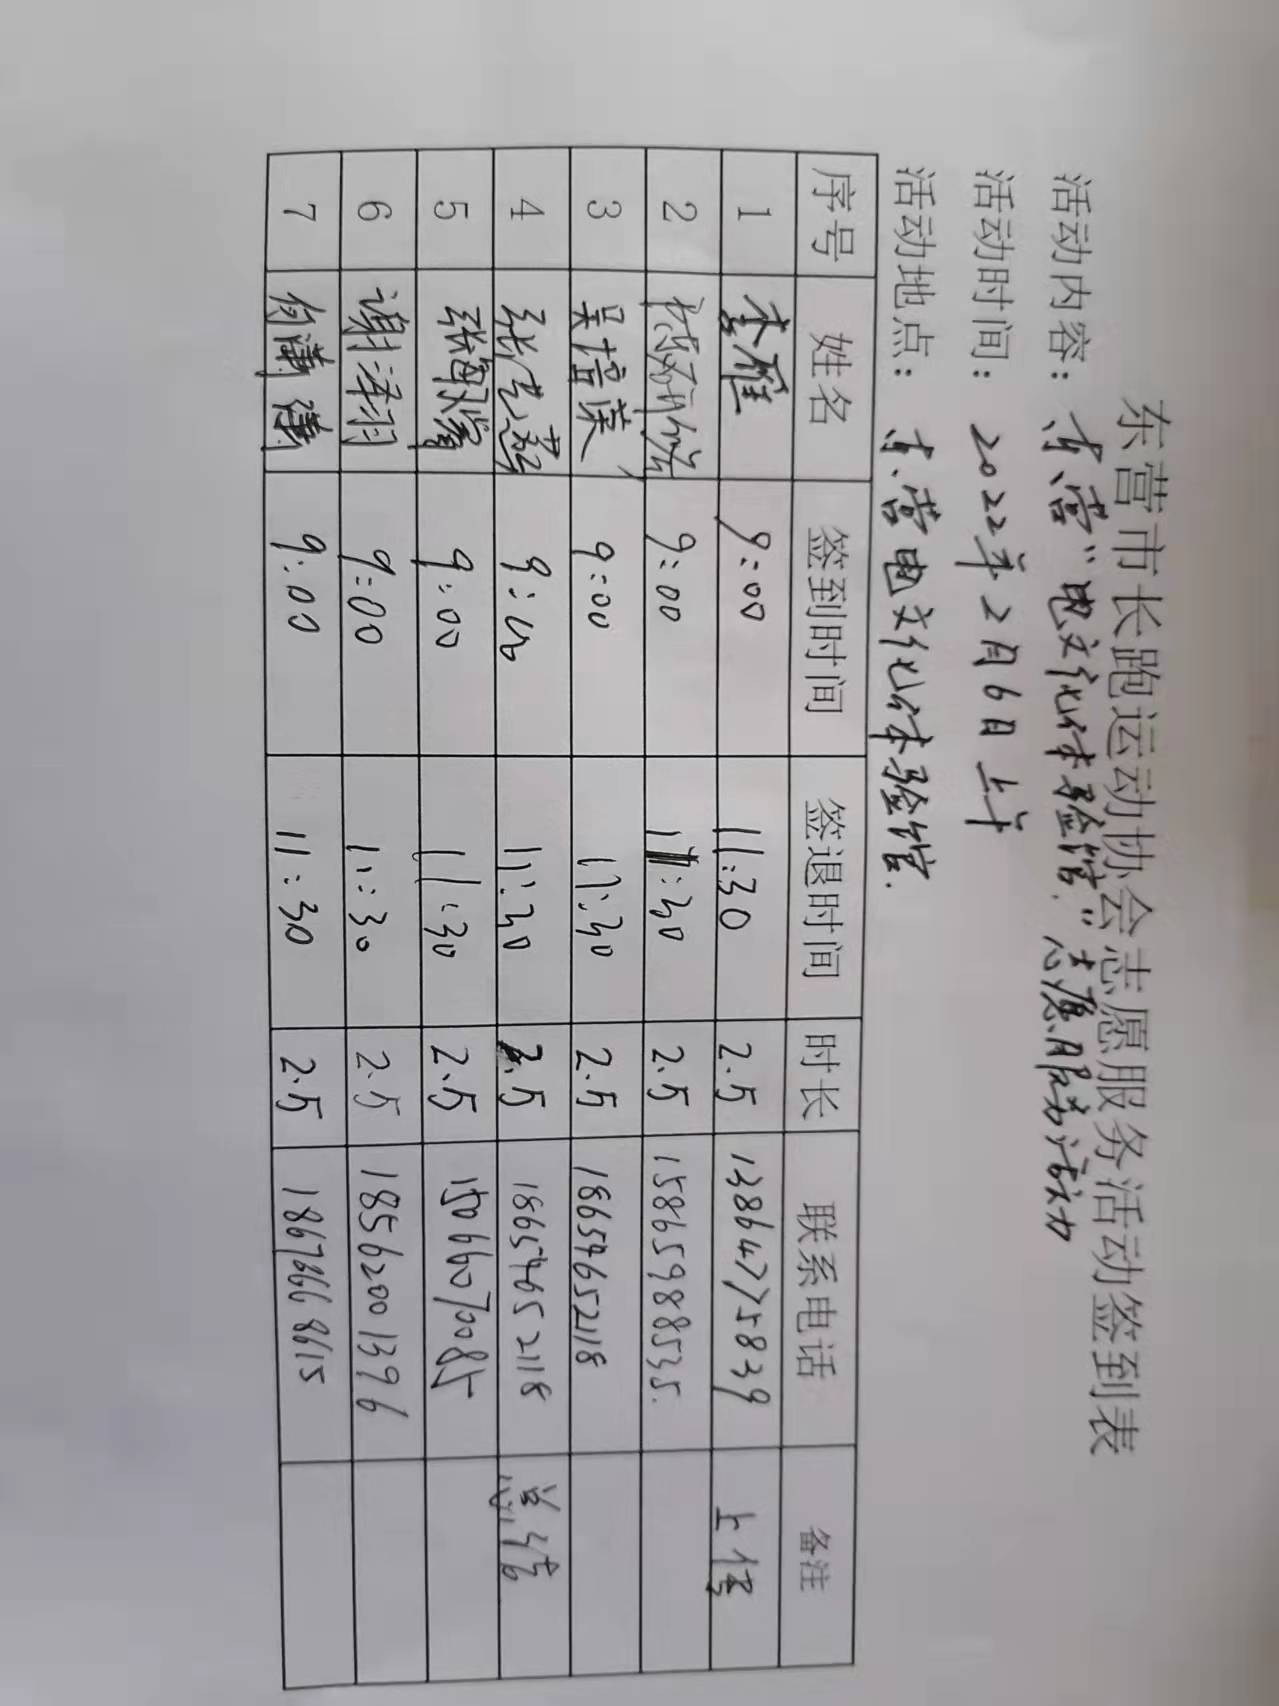 东营市长跑运动协会志愿服务活动签到表
活动内容：东营"电文化体验馆"志愿服务活动
活动时间：2022年2月6日上午
活动地点：东营电文化体验馆.
序号 姓名 签到时间 签退时间 时长 联系电话 备注
1 李雁 9:00 11:30 2.5 13864775839 上传
2 9:00 11:30 2.5 15865988535.
3 吴培英 9:00 11:30 2.5 18654652118
4 9:00 11:30 2.5 18654652118 总结
5 9:00 11:30 2.5 15066070085
6 谢泽羽 9:00 11:30 2.5 18562001396
7 9:00 11:30 2.5 18673668615